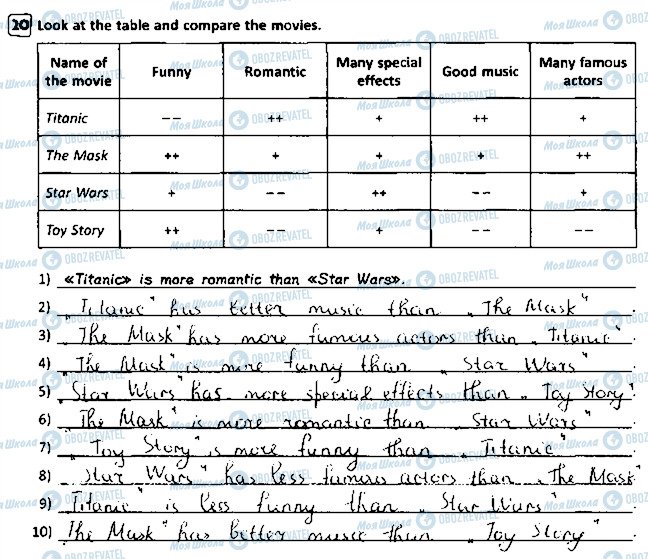 20 Look at the table and compare the movies.
Name of the movie Funny Romantic Many special effects Good music Many famous actors
Titanic -- ++ + ++ +
The Mask ++ + + + ++
Star Wars + -- ++ -- +
Toy Story ++ -- + -- --
1) «Titanic» is more romantic than «Star Wars».
2) „Titanic" has better music than „The Mask".
3) „The Mask" has more famous actors than „Titanic".
4) „The Mask" is more funny than „Star Wars".
5) „Star Wars" has more special effects than „Toy Story".
6) „The Mask" is more romantic than „Star Wars".
7) „Toy Story" is more funny than „Titanic".
8) „Star Wars" has less famous actors than „The Mask"
9) „Titanic" is less funny than „Star Wars".
10) „The Mask" has better music than „Toy Story".
Моя Школа OBOZREVATEL